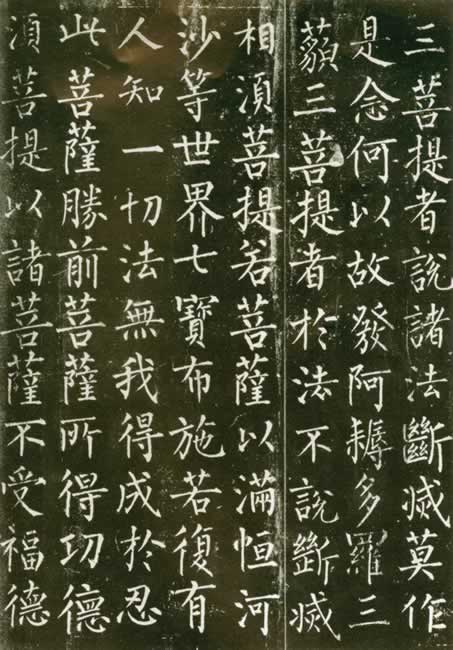 三菩提者說諸法斷滅莫作
是念何以故發阿耨多羅三
藐三菩提者於法不說斷滅
相湏菩提若菩薩以滿恒河
沙等世界七寶布施若復有
人知一切法無我得成於忍
此菩薩勝前菩薩所得功德
湏菩提以諸菩薩不受福德